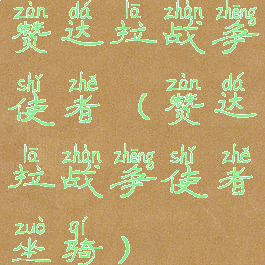 zàn dá lā zhàn zhēng
赞达拉战争
shǐ zhě zàn dá
使者(赞达
lā zhàn zhēng shǐ zhě
拉战争使者
zuò qí
坐骑)